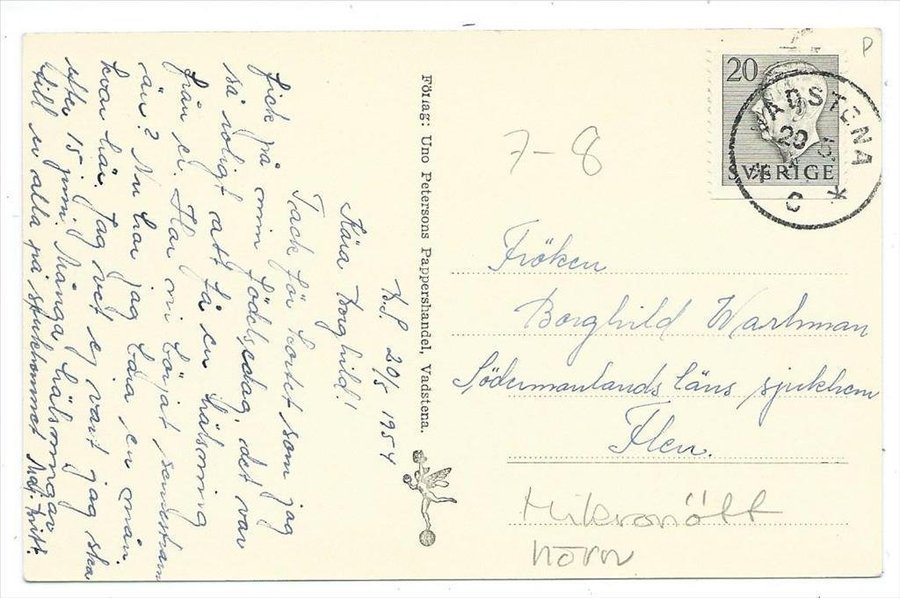 V.S. 20/5 1954
Kära Borghild!
Tack för kortet som jag
fick på min födelsedag, det var
så roligt att få en hälsning
från er. Har ni börjat
än? Nu har jag bara en mån.
kvar här. Jag vet ej vart jag ska
efter 15 juni. Många hälsningar
till er alla på sjukhemmet Maj-Britt.
Förlag: Uno Petersons Pappershandel, Vadstena.
P
20
SVERIGE
VADSTENA
20 5
C *
7-8
Fröken
Borghild Wartman
Södermanlands läns sjukhem
Flen.
hörn